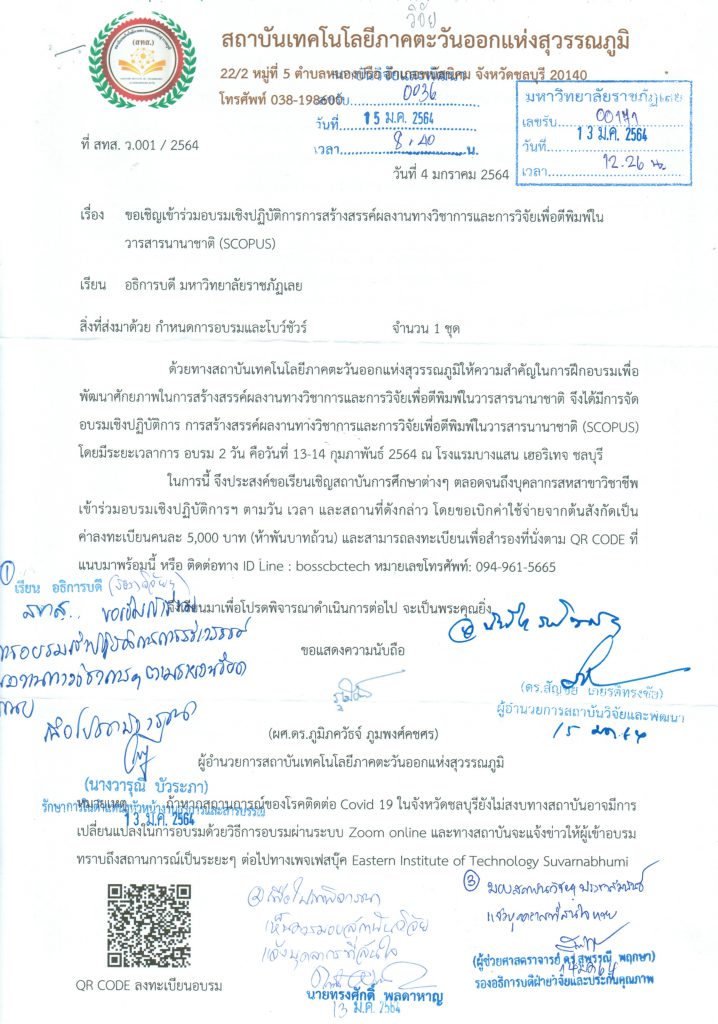 วิจัย
สถาบันเทคโนโลยีภาคตะวันออกแห่งสุวรรณภูมิ
22/2 หมู่ที่ 5 ตำบลหนองปรือ อำเภอพนัสนิคม จังหวัดชลบุรี 20140
โทรศัพท์ 038-198600
0036
วันที่ 15 ม.ค. 2564
เวลา 8.40 น.
มหาวิทยาลัยราชภัฏเลย
เลขรับ
วันที่ 13 ม.ค. 2564
เวลา 12.26 น.
(สทส.)
ที่ สทส. ว.001 / 2564
วันที่ 4 มกราคม 2564
เรื่อง ขอเชิญเข้าร่วมอบรมเชิงปฏิบัติการการสร้างสรรค์ผลงานทางวิชาการและการวิจัยเพื่อตีพิมพ์ใน
วารสารนานาชาติ (SCOPUS)
เรียน อธิการบดี มหาวิทยาลัยราชภัฏเลย
สิ่งที่ส่งมาด้วย กำหนดการอบรมและโบว์ชัวร์ จำนวน 1 ชุด
ด้วยทางสถาบันเทคโนโลยีภาคตะวันออกแห่งสุวรรณภูมิให้ความสำคัญในการฝึกอบรมเพื่อ
พัฒนาศักยภาพในการสร้างสรรค์ผลงานทางวิชาการและการวิจัยเพื่อตีพิมพ์ในวารสารนานาชาติ จึงได้มีการจัด
อบรมเชิงปฏิบัติการ การสร้างสรรค์ผลงานทางวิชาการและการวิจัยเพื่อตีพิมพ์ในวารสารนานาชาติ (SCOPUS)
โดยมีระยะเวลาการ อบรม 2 วัน คือวันที่ 13-14 กุมภาพันธ์ 2564 ณ โรงแรมบางแสน เฮอริเทจ ชลบุรี
ในการนี้ จึงประสงค์ขอเรียนเชิญสถาบันการศึกษาต่างๆ ตลอดจนถึงบุคลากรสหสาขาวิชาชีพ
เข้าร่วมอบรมเชิงปฏิบัติการฯ ตามวัน เวลา และสถานที่ดังกล่าว โดยขอเบิกค่าใช้จ่ายจากต้นสังกัดเป็น
ค่าลงทะเบียนคนละ 5,000 บาท (ห้าพันบาทถ้วน) และสามารถลงทะเบียนเพื่อสำรองที่นั่งตาม QR CODE ที่
แนบมาพร้อมนี้ หรือ ติดต่อทาง ID Line : bosscbctech หมายเลขโทรศัพท์: 094-961-5665
จึงเรียนมาเพื่อโปรดพิจารณาดำเนินการต่อไป จะเป็นพระคุณยิ่ง
ขอแสดงความนับถือ
(ผศ.ดร.ภูมิภควัธจ์ ภูมพงศ์คชศร)
ผู้อำนวยการสถาบันเทคโนโลยีภาคตะวันออกแห่งสุวรรณภูมิ
1 เรียน อธิการบดี
เพื่อโปรดพิจารณา
(นางวารุณี บัวระภา)
13 ม.ค. 2564
(ดร.สัญชัย เกียรติทรงชัย)
ผู้อำนวยการสถาบันวิจัยและพัฒนา
15 ม.ค. 64
หมายเหตุ ถ้าหากสถานการณ์ของโรคติดต่อ Covid 19 ในจังหวัดชลบุรียังไม่สงบทางสถาบันอาจมีการ
เปลี่ยนแปลงในการอบรมด้วยวิธีการอบรมผ่านระบบ Zoom online และทางสถาบันจะแจ้งข่าวให้ผู้เข้าอบรม
ทราบถึงสถานการณ์เป็นระยะๆ ต่อไปทางเพจเฟสบุ๊ค Eastern Institute of Technology Suvarnabhumi
QR CODE ลงทะเบียนอบรม
2 เพื่อโปรดพิจารณา
เห็นควรมอบสถาบันวิจัย
แจ้งบุคลากรที่สนใจ
นายทรงศักดิ์ พลดาหาญ
13 ม.ค. 2564
3 มอบสถาบันวิจัยฯ ประชาสัมพันธ์
(ผู้ช่วยศาสตราจารย์ ดร.สุพรรณี พฤกษา)
รองอธิการบดีฝ่ายวิจัยและประกันคุณภาพ